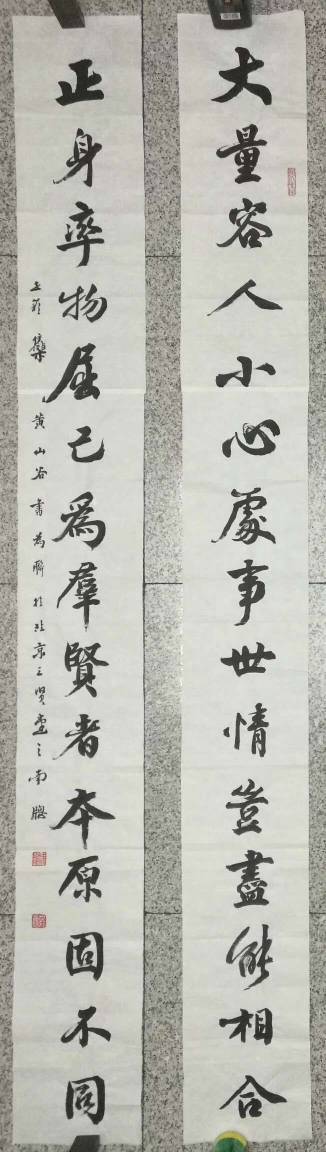 大量容人小心處事世情豈盡能相合
正身率物屈己為羣賢者本原固不同
集黃山谷書為聯於北京三賢堂之南牕